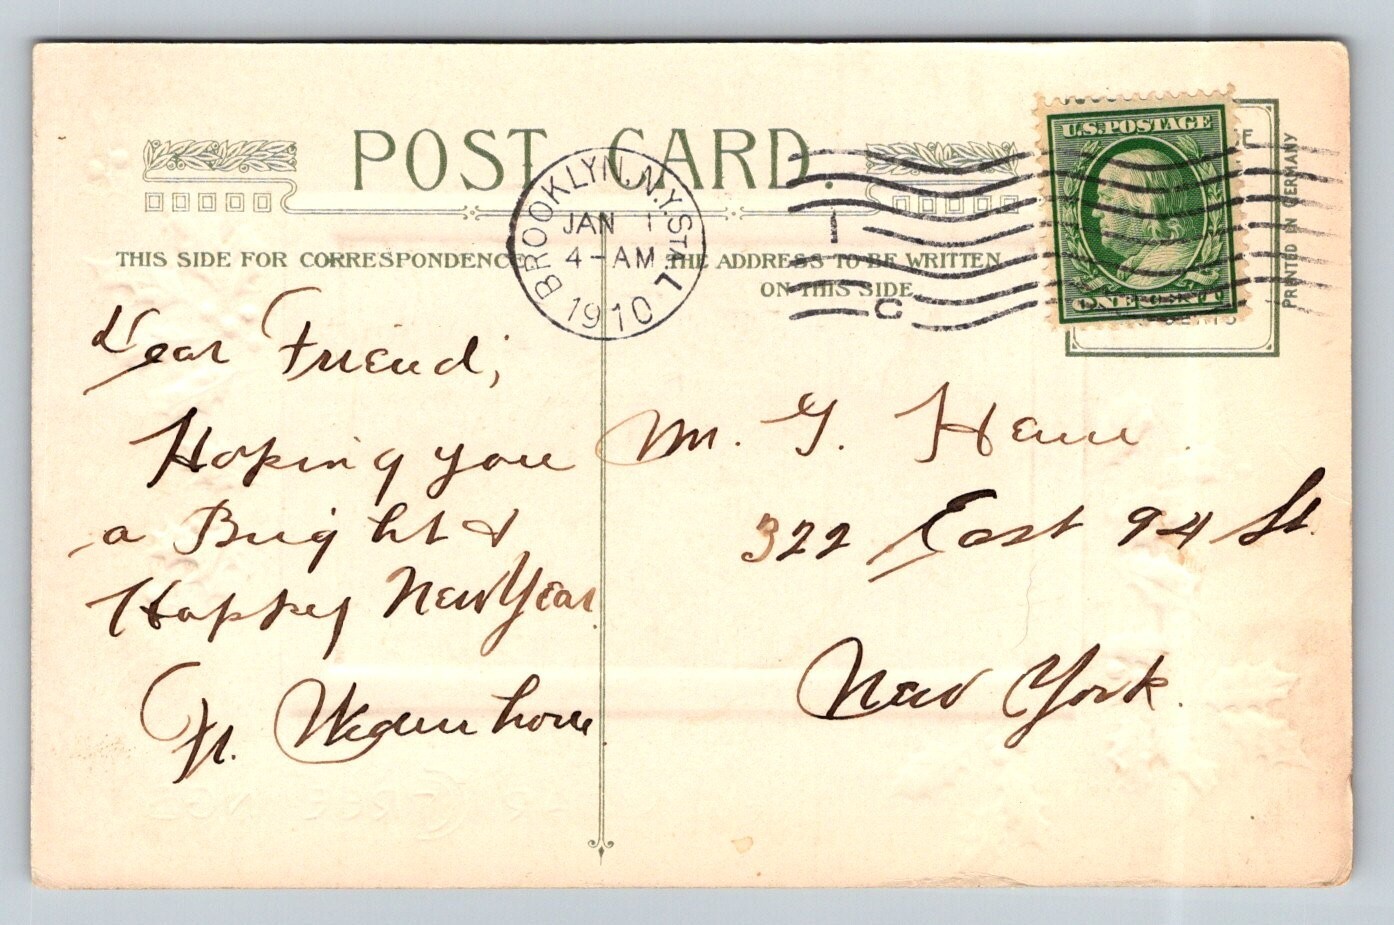 POST CARD.
BROOKLYN, N.Y. STA. L
JAN 1
4-AM
1910
1
C
U.S. POSTAGE
ONE CENT
PRINTED IN GERMANY
THIS SIDE FOR CORRESPONDENCE
THE ADDRESS TO BE WRITTEN
ON THIS SIDE
Dear Friend,
Hoping you
a Bright &
Happy New Year.
Fr.
M. G.
322 East 94 St.
New York.